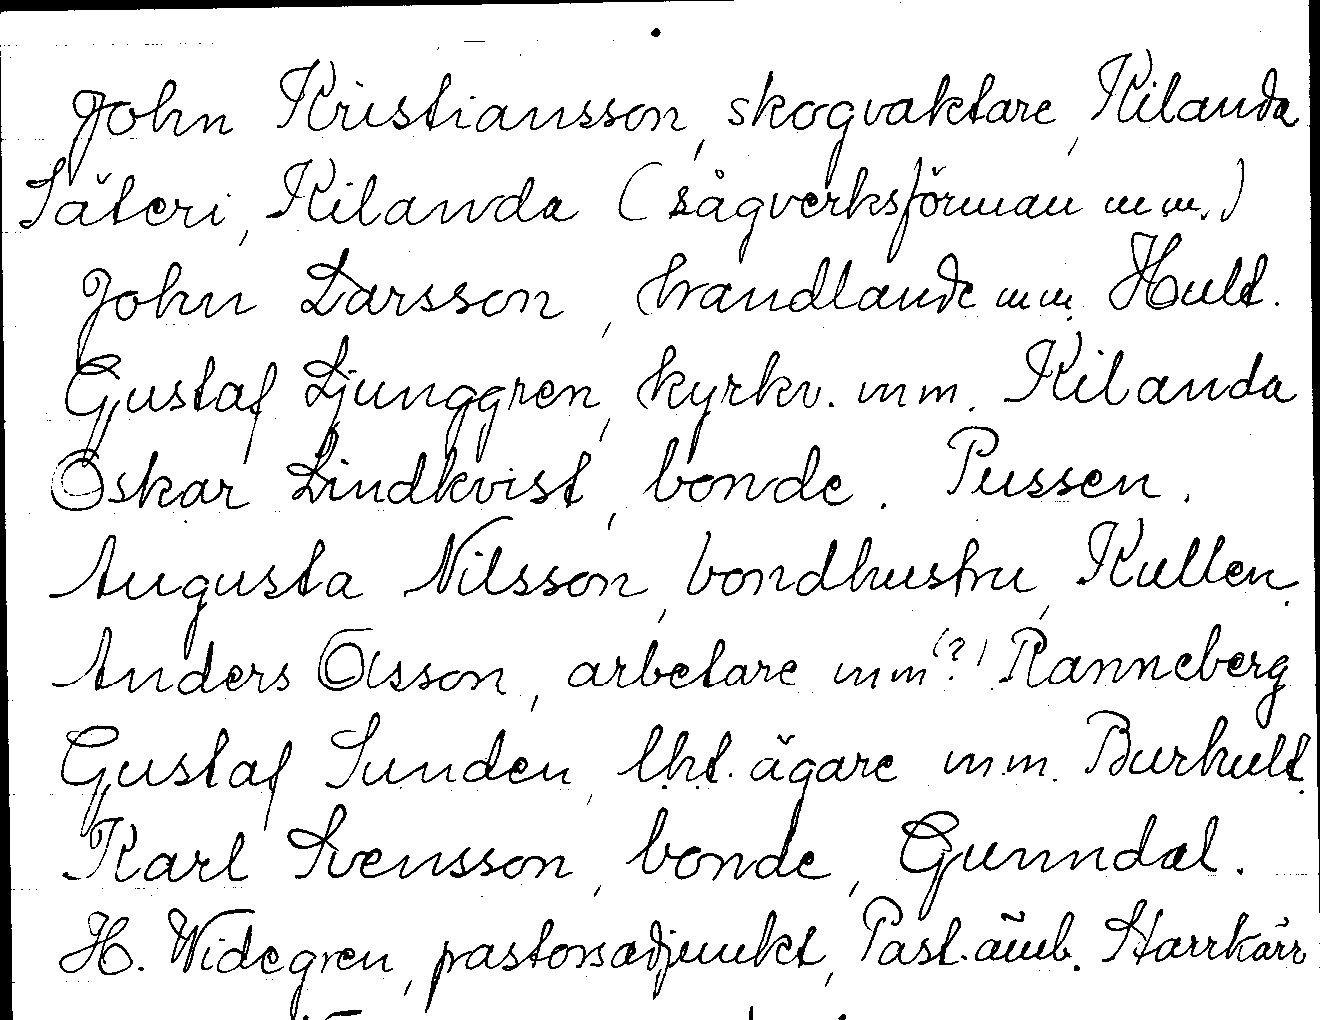 John Kristiansson, skogvaktare, Kilanda
Säteri, Kilanda (sågverksförman m m.)
John Larsson, handlande m m. Hult.
Gustaf Ljunggren, kyrkv. m m. Kilanda
Oskar Lindkvist, bonde. Pussen.
Augusta Nilsson, bondhustru, Kullen.
Anders Olsson, arbetare m m (?) Ranneberg
Gustaf Sunden, lht. ägare m.m. Burhult.
Karl Svensson, bonde, Gunndal.
H. Widegren, pastorsadjunkt, Past. ämb. Starrkärr